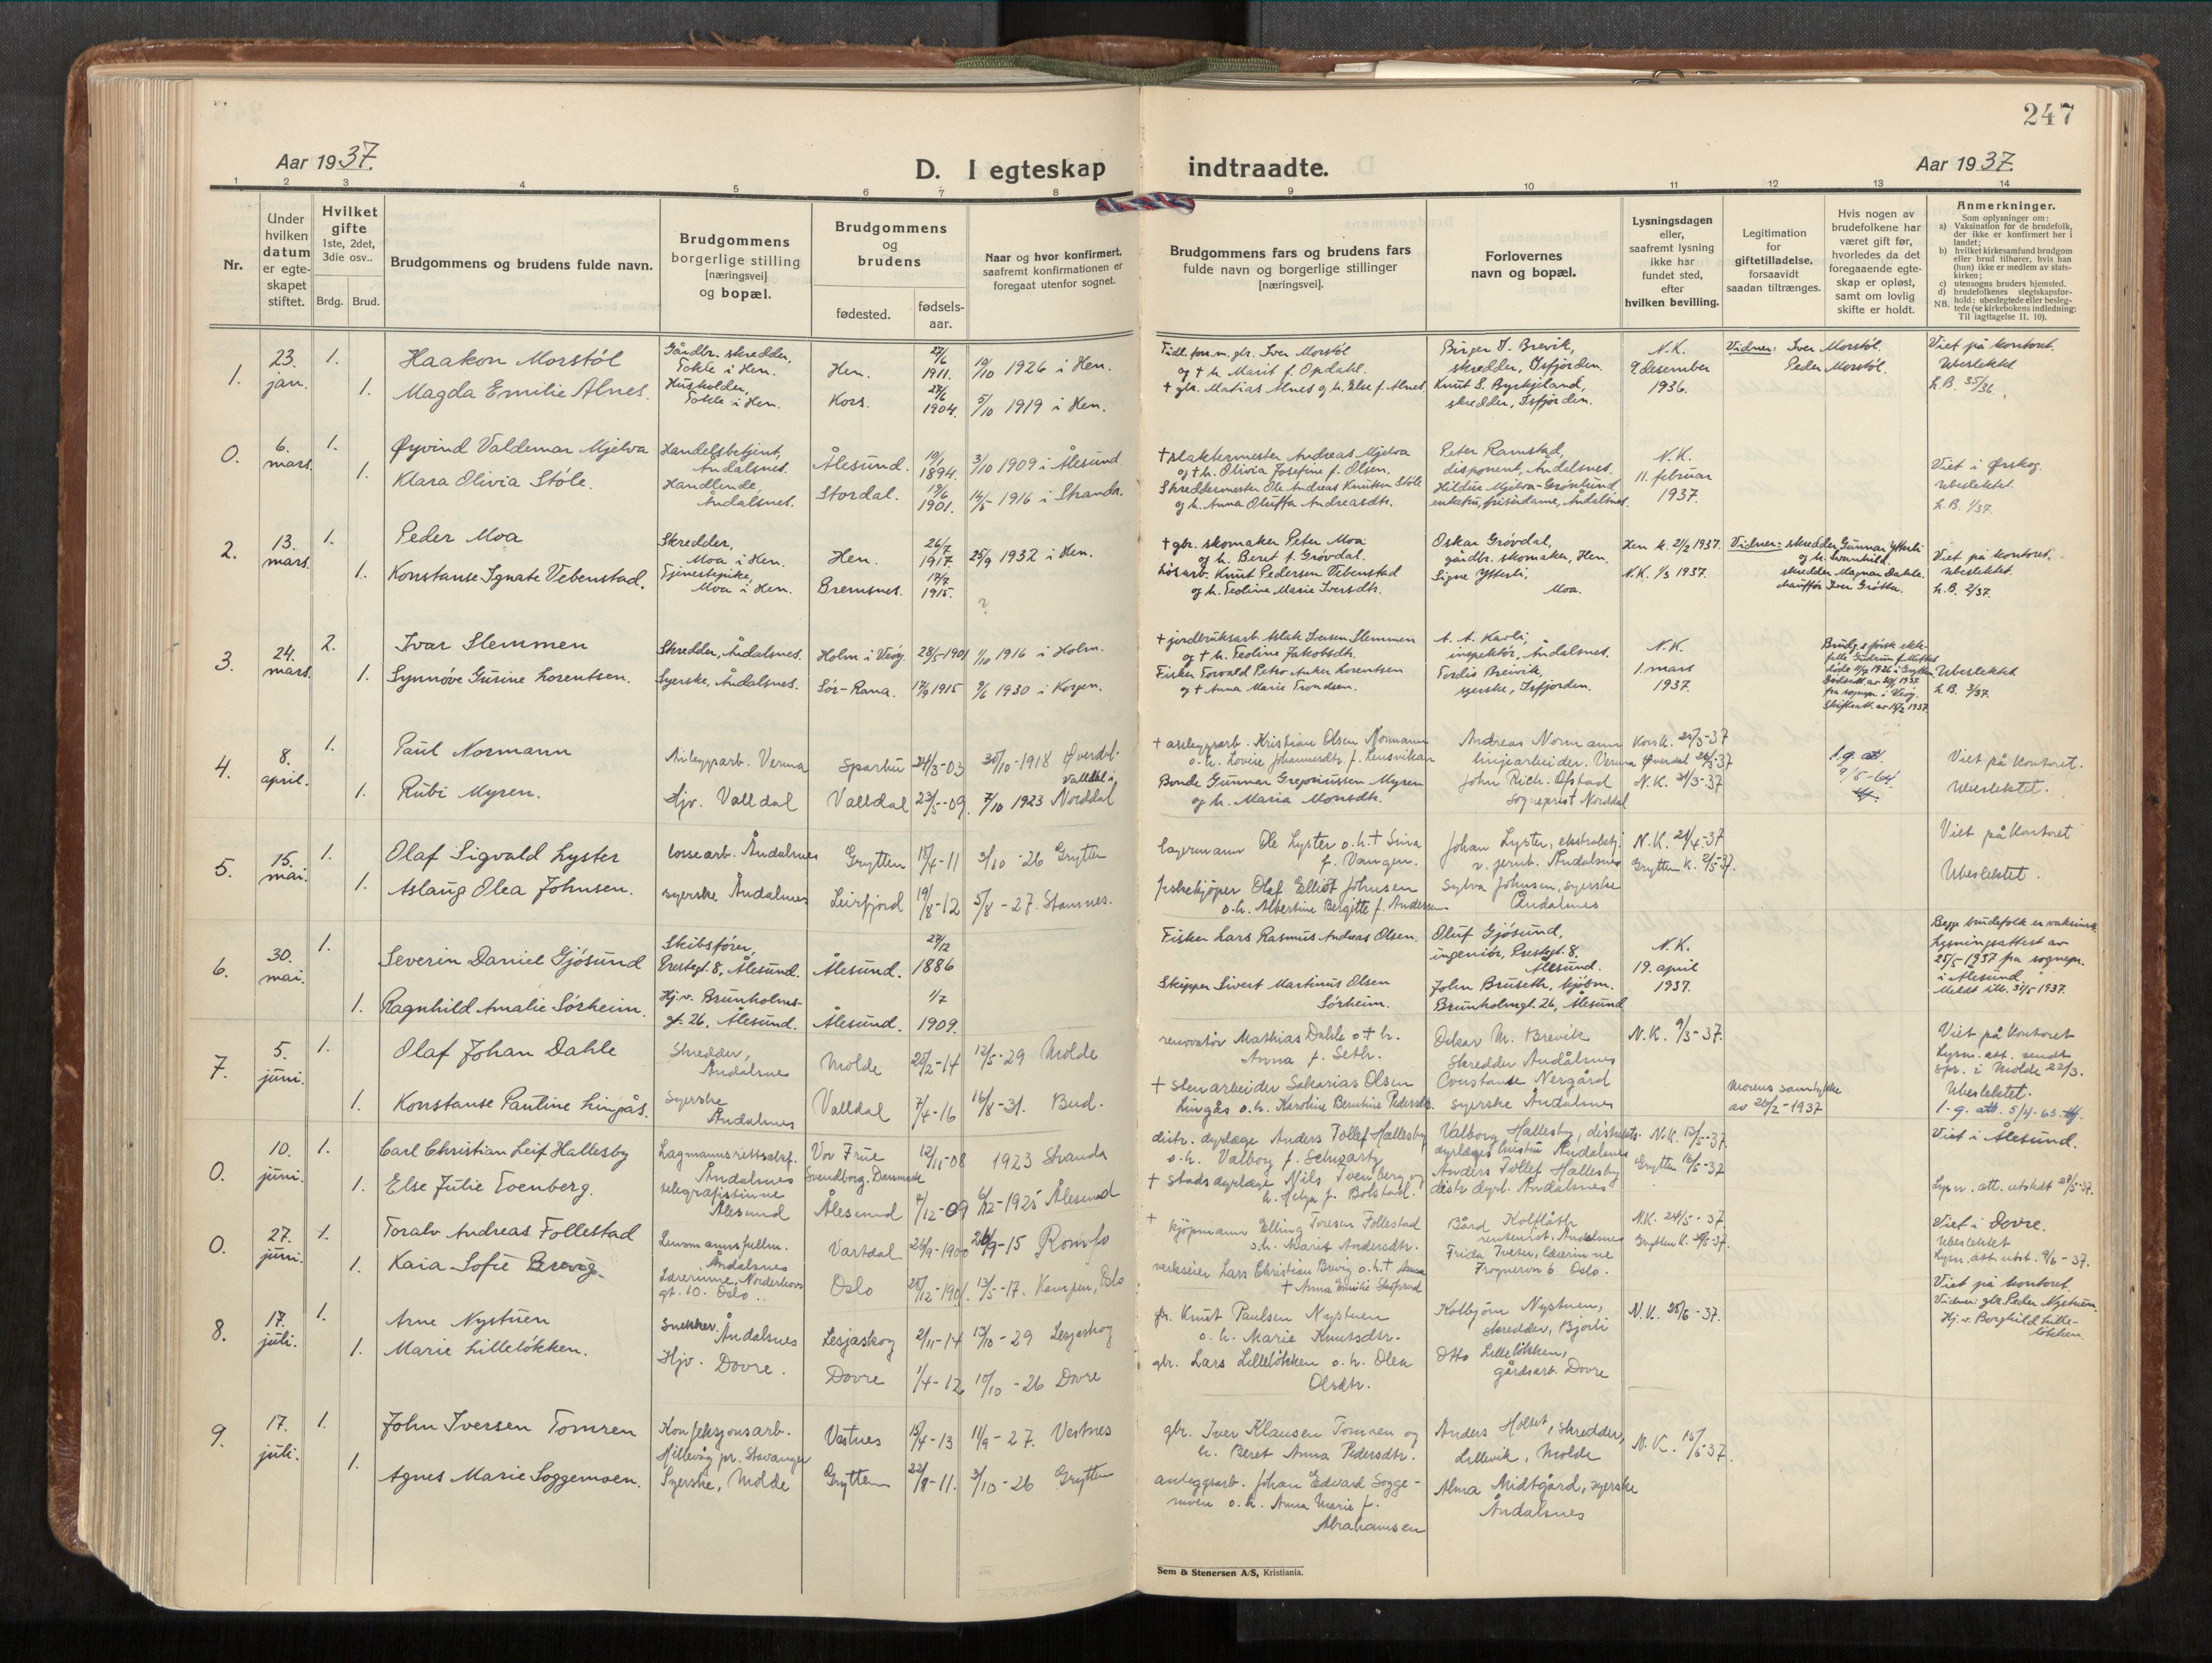 247
Aar 1937.
D. I egteskap indtraadte.
Aar 1937.
1 2 3 4 5 6 7 8 9 10 11 12 13 14
Nr.
Under hvilken datum er egte-skapet stiftet.
Hvilket gifte 1ste, 2det, 3die osv..
Brdg. Brud.
Brudgommens og brudens fulde navn.
Brudgommens borgerlige stilling [næringsvei] og bopæl.
Brudgommens og brudens
fødested.
fødsels-aar.
Naar og hvor konfirmert, saafremt konfirmationen er foregaat utenfor sognet.
Brudgommens fars og brudens fars fulde navn og borgerlige stillinger [næringsvei].
Forlovernes navn og bopæl.
Lysningsdagen eller, saafremt lysning ikke har fundet sted, efter hvilken bevilling.
Legitimation for giftetilladelse, forsaavidt saadan tiltrænges.
Hvis nogen av brudefolkene har været gift før, hvorledes da det foregaaende egte-skap er opløst, samt om lovlig skifte er holdt.
Anmerkninger.
Som oplysninger om:
a) Vaksination for de brudefolk, der ikke er konfirmert her i landet;
b) hvilket kirkesamfund brudgom eller brud tilhører, hvis han (hun) ikke er medlem av stats-kirken;
c) utensogns bruders hjemsted.
d) brudefolkenes slegtskapsfor-hold: ubeslegtede eller besleg-tede (se kirkebokens indledning: Til iagttagelse II. 10).
NB.
1. 23. jan. 1. Haakon Morstöl
Gåndbr. skredder, Tokle i Hen.
Hen. 27/6 1911. 10/10 1926 i Hen.
Fidl. forr.m. gbr. Iver Morstöl
og † h. Marit f. Opdahl.
Birger J. Brevik, skredder, Isfjorden.
N.K. 9. desember 1936.
Vidner: Iver Morstöl. Peder Morstöl.
Viet på kontoret. Ubeslektet. L.B. 35/36.
1. Magda Emilie Alnes.
Husholder, Tokle i Hen.
Kors. 1904. 5/10 1919 i Hen.
† gbr. Matias Alnes og h. Else f. Alnes
Knut S. Byrkjeland, skredder, Isfjorden.
0. 6. mars. 1. Øyvind Valdemar Mjelva
Handelsbetjent, Åndalsnes.
Ålesund. 10/1 1894. 3/10 1909 i Ålesund.
† slaktermester Andreas Mjelva
og † h. Olivia Josefine f. Olsen.
Peter Ramstad, disponent, Åndalsnes.
N.K. 11. februar 1937.
Viet i Ørskog. Ubeslektet. L.B. 1/37.
1. Klara Olivia Stöle.
Handlende, Åndalsnes.
Stordal. 19/6 1901. 14/5 1916 i Stranda.
Skreddermester Ole Andreas Knutsen Stöle
og h. Anna Oluffa Andreasdtr.
Hildur Mjelva-Grönlund
enkefru, frisørdame, Åndalsnes.
2. 13. mars. 1. Peder Moa
Skredder, Moa i Hen.
Hen. 26/7 1917. 25/9 1932 i Hen.
† gbr. skomaker Peter Moa
og h. Beret f. Grövdal.
Oskar Grövdal, gårdbr. skomaker, Hen.
Hen k. 21/2 1937.
N.K. 1/3 1937.
Vidner: skredder Gunnar Ytterli
og h. Svanhild.
skredder Magnar Dahle.
chauffør Iver Grötta.
Viet på kontoret. Ubeslektet. L.B. 2/37.
1. Konstanse Ignate Vebenstad.
Tjenestepike, Moa i Hen.
Bremsnes. 17/7 1915. ?
lösarb. Knut Pedersen Vebenstad
og h. Teoline Marie Iversdtr.
Signe Ytterli, Moa.
3. 24. mars. 2. Ivar Slemmen
Skredder, Åndalsnes. Holm i Veöy. 28/5-1901 1/10 1916 i Holm.
† jordbruksarb. Aslak Iversen Slemmen
og † h. Teoline Jakobsdtr.
A. A. Karli, inspektör, Åndalsnes.
N.K. 1. mars 1937.
Ubeslektet. L.B. 3/37.
1. Synnöve Gurine Lorentsen.
Syerske, Åndalsnes. Sör-Rana. 17/9 1915 9/6 1930 i Korgen.
Fisker Torvald Petro Anker Lorentsen
og † Anna Marie Trondsen.
Tordis Breivik, syerske, Isfjorden.
4. 8. april. 1. Paul Normann
Anleggsarb. Verma Sparbu 24/3-03 30/10-1918 Øverdal.
† anleggsarb. Kristian Olsen Normann
o. h. Lovise Johannesdtr. f. Lensvikas
Andreas Normann linjearbeider. Verma
Kors k. 28/3-37
Øverdal 28/3-37
N.K. 31/3-37
l.g. att. 9/5-64.
Viet på kontoret. Ubeslektet.
1. Rubi Myren.
Hjv. Valldal Valldal 23/5-09. 7/10 1923 Valldal i Norddal
Bonde Gunnar Gregoriussen Myren
og h. Maria Monsdtr.
John Rich. Ofstad Sogneprest Norddal
5. 15. mai. 1. Olaf Sigvald Lyster
lossearb. Åndalsnes Grytten 15/4-11 3/10-26 Grytten
lagermann Ole Lyster o.h. † Sina
f. Vangen.
Johan Lyster, ekstrabetj. v. jernb. Åndalsnes
N.K. 21/4-37
Grytten k. 2/5-37.
Viet på kontoret
Ubeslektet.
1. Aslaug Olea Johnsen.
syerske Åndalsnes Leirfjord 19/8-12 5/8-27. Stamnes.
fiskekjöper Olaf Elliot Johnsen
o.h. Albertine Bergitte f. Andersen
Sylva Johnsen, syerske Åndalsnes
6. 30. mai. 1. Severin Daniel Gjösund
Skibsförer, Prestegt. 8, Ålesund. Ålesund. 27/12 1886
Fisker Lars Rasmus Andreas Olsen.
Oluf Gjösund, ingeniör, Prestegt. 8, Ålesund.
N.K. 19. april 1937.
Begge brudefolk er vaksinert.
Lysningsattest av 25/5-1937 fra sognepr. i Ålesund
Meldt 31/5 1937.
1. Ragnhild Amalie Sörheim.
Hj.v. Brunholmsgt. 26, Ålesund. Ålesund. 1/7 1909.
Skipper Sivert Martinus Olsen Sörheim.
John Bruseth, kjöpm. Brunholmgt. 26, Ålesund
7. 5. juni. 1. Olaf Johan Dahle
Skredder, Åndalsnes Molde 20/2-14 12/5-29 Molde
renovatör Mathias Dahle o † h.
Anna f. Seth.
Oskar M. Brevik Skredder Åndalsnes
N.K. 9/3-37.
Viet på kontoret
Lysn. att. sendt spr. i Molde 22/3.
Ubeslektet.
l.g. att. 5/4-63.
1. Konstanse Pauline Lingås.
Syerske Åndalsnes Valldal 7/4-16 16/8-31. Bud.
† Stenarbeider Sakarias Olsen
Lingås o.h. Karoline Berntine Pedersdtr.
Constanse Nergård syerske Åndalsnes
Morens samtykke av 26/2-1937
0. 10. juni. 1. Carl Christian Leif Hallesby
Lagmannsrettssekr. Åndalsnes
Vor Frue Svendborg, Danmark 12/11-08 1923 Stranda
distr. dyrlæge Anders Tollef Hallesby
o.h. Valborg f. Schwartz
Valborg Hallesby, distrikts-dyrlæges hustru Åndalsnes
N.K. 13/5-37.
Grytten 16/5-37
Viet i Ålesund.
Lysn. att. utstedt 28/5-37.
1. Else Julie Toenberg.
telegrafistinne Ålesund
Ålesund 7/12-09 6/12-1925 Ålesund
† Stadsdyrlæge Nils Tvenberg og
h. Helga f. Bolstad.
Anders Tollef Hallesby distr. dyrl. Åndalsnes
0. 27. juni. 1. Toralv Andreas Follestad
Lensmannsfullm. Åndalsnes
Vartdal 26/9-1900 26/9-15 Romfo
† kjöpmann Elling Toresen Follestad
o.h. Marit Andersdtr.
Bård Kolflåth rentenist. Åndalsnes
N.K. 24/5-37.
Viet i Dovre.
Ubeslektet
Lysn. att. utst. 9/6-37.
1. Kaia Sofie Brevig.
Lærerinne, Norderhovsgt. 10. Oslo.
Oslo 28/12-1901. 13/5-17. Kampen, Oslo
verkseier Lars Christian Brevig o.h. †
Frida Tveter, Lærerinne Frognervn 6 Oslo.
8. 17. juli. 1. Arne Nystuen
Snekker. Åndalsnes Lesjaskog 2/11-14 13/10-29 Lesjaskog
gr. Knut Paulsen Nystuen
o. h. Marie Knutsdtr.
Kolbjörn Nystuen, skredder, Bjorli
N.K. 25/6-37.
Viet på kontoret.
Vidner: gbr. Peder Nystuen
Hj. v. Borghild Lille-lökken.
1. Marie Lillelökken.
Hjv. Dovre. Dovre 1/4-12 10/10-26 Dovre
gbr. Lars Lillelökken o. h. Olea
Olsdtr.
Otto Lillelökken, gårdsarb. Dovre
9. 17. juli. 1. John Iversen Tomren
Konfeksjonsarb. Hillevåg pr. Stavanger
Vestnes 15/4-13 11/9-27. Vestnes
gbr. Iver Klausen Tomren og
h. Beret Anna Pedersdtr.
Anders Holset, skredder, Lillevik, Molde
N.K. 15/6-37.
1. Agnes Marie Soggemoen.
Syerske, Molde Grytten 22/8-11. 3/10-26 Grytten
anleggsarb. Johan Edvard Sogge-
moen o.h. Anna Marie f.
Abrahamsen
Alma Midtgård, syerske Åndalsnes
Sem & Stenersen A/S, Kristiania.